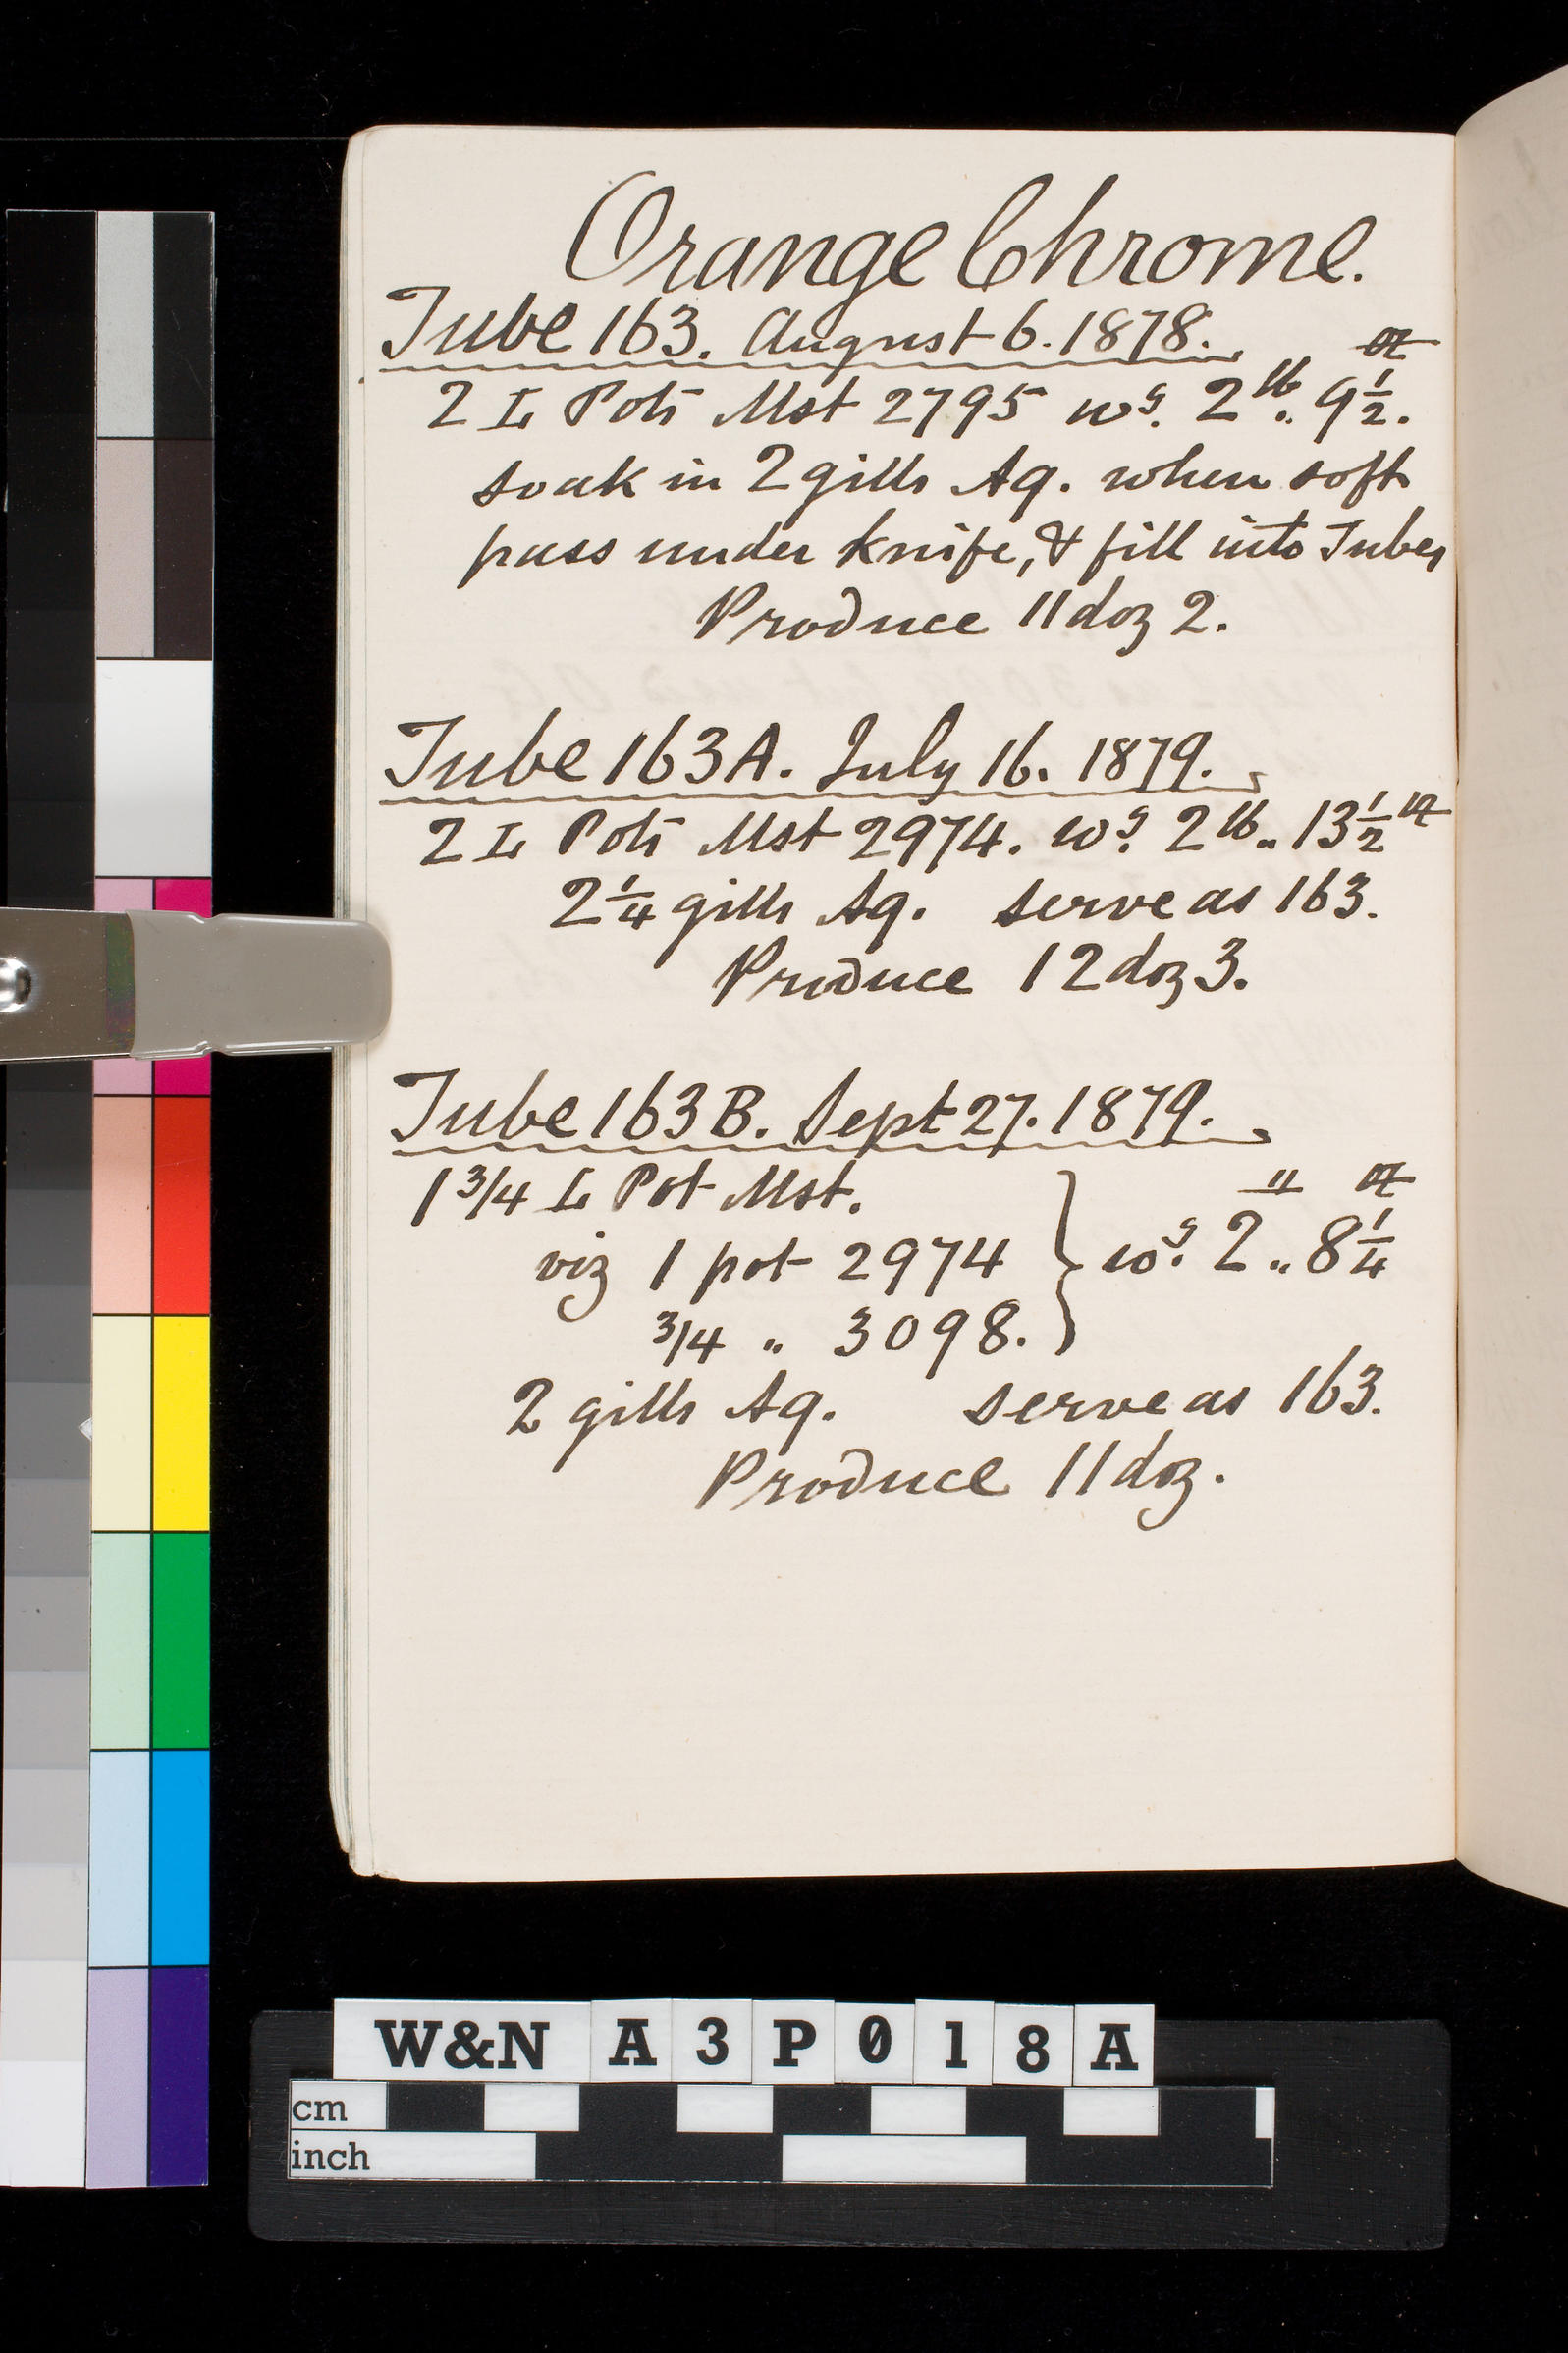 Orange Chrome.
Tube 163. August 6. 1878.
2 L Pots Mst 2795 wg. 2 lb.. 9 1/2. oz
soak in 2 gills Aq. when soft
pass under knife, & fill into Tubes
Produce 11 doz 2.
Tube 163A. July 16. 1879.
2 L Pots Mst 2974. wg. 2 lb.. 13 1/2 oz
2 1/4 gills Aq. serve as 163.
Produce 12 doz 3.
Tube 163B. Sept 27. 1879.
1 3/4 L Pot Mst.
viz 1 pot 2974 } wg. 2 .. 8 1/4 oz
3/4 " 3098.
2 gills Aq. serve as 163.
Produce 11 doz.
W&N A3P018A
cm
inch